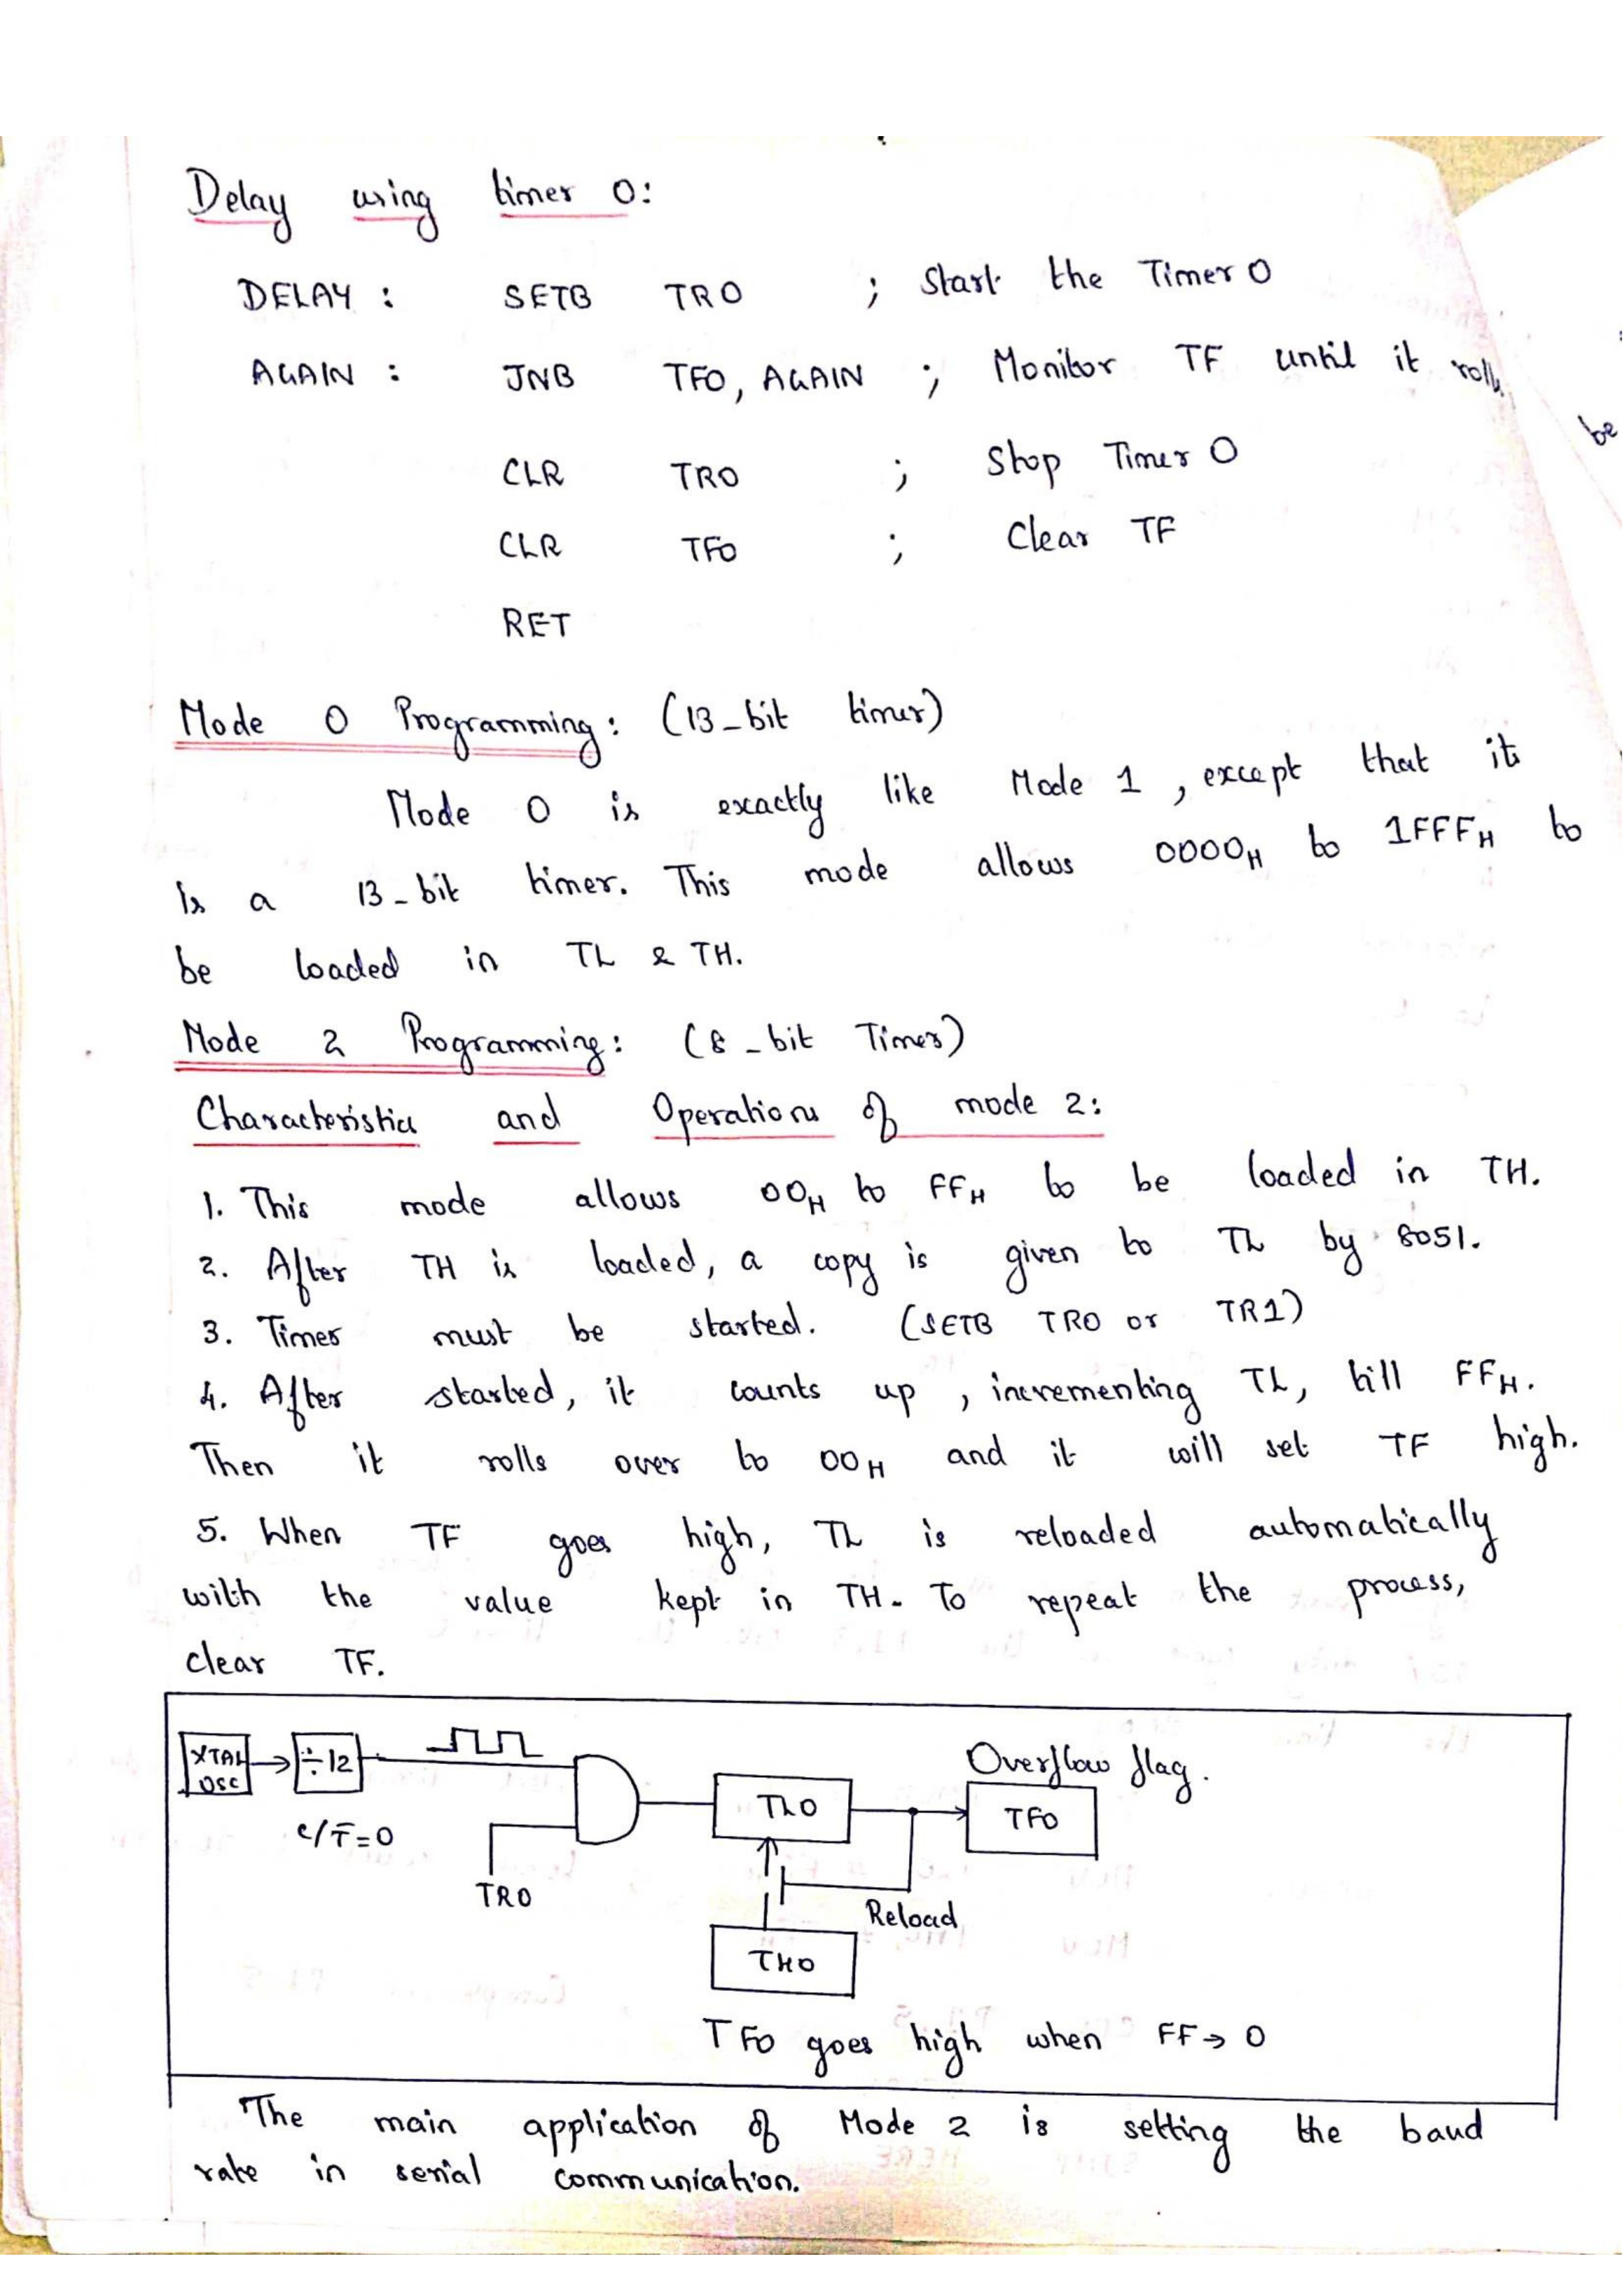 Delay using timer 0:
DELAY : SETB TR0 ; Start the Timer 0
AGAIN : JNB TF0, AGAIN ; Monitor TF until it rolls
be
CLR TR0 ; Stop Timer 0
CLR TF0 ; Clear TF
RET
Mode 0 Programming: (13-bit timer)
Mode 0 is exactly like Mode 1, except that it
is a 13-bit timer. This mode allows 0000H to 1FFFH to
be loaded in TL & TH.
Mode 2 Programming: (8-bit Timer)
Characteristics and Operations of mode 2:
1. This mode allows 00H to FFH to be loaded in TH.
2. After TH is loaded, a copy is given to TL by 8051.
3. Timer must be started. (SETB TR0 or TR1)
4. After started, it counts up, incrementing TL, till FFH.
Then it rolls over to 00H and it will set TF high.
5. When TF goes high, TL is reloaded automatically
with the value kept in TH. To repeat the process,
clear TF.
XTAL
OSC
÷12
C/T̅=0
TR0
TL0
Overflow flag.
TF0
Reload
TH0
TF0 goes high when FF→0
The main application of Mode 2 is setting the baud
rate in serial communication.